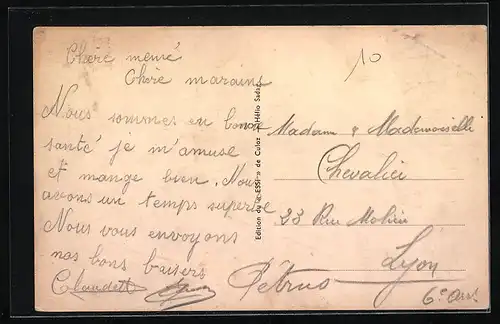 10
Chère memé
Chère maraine
Nous sommes en bonne
santé je m'amuse
et mange bien. Nous
avons un temps superbe
Nous vous envoyons
nos bons baisers
Claudett
Pétrus
Edition du de Culoz Hélio Sadag
Madam & Mademoiselle
Chevalier
23 Rue
Lyon
6e arr